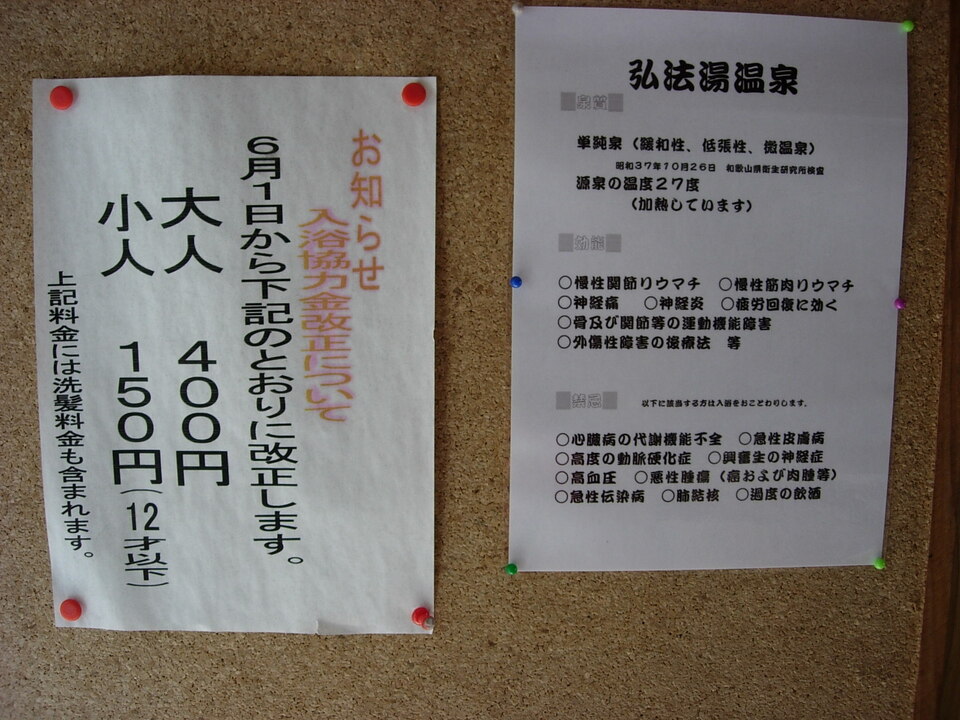 お知らせ
入浴協力金改正について
6月1日から下記のとおりに改正します。
大人 400円
小人 150円(12才以下)
上記料金には洗髪料金も含まれます。
弘法湯温泉
泉質
単純泉(緩和性、低張性、微温泉)
昭和37年10月26日 和歌山県衛生研究所検査
源泉の温度27度
(加熱しています)
効能
○慢性関節リウマチ ○慢性筋肉リウマチ
○神経痛 ○神経炎 ○疲労回復に効く
○骨及び関節等の運動機能障害
○外傷性障害の後療法 等
禁忌 以下に該当する方は入浴をおことわりします。
○心臓病の代謝機能不全 ○急性皮膚病
○高度の動脈硬化症 ○興奮生の神経症
○高血圧 ○悪性腫瘍(癌および肉腫等)
○急性伝染病 ○肺結核 ○過度の飲酒